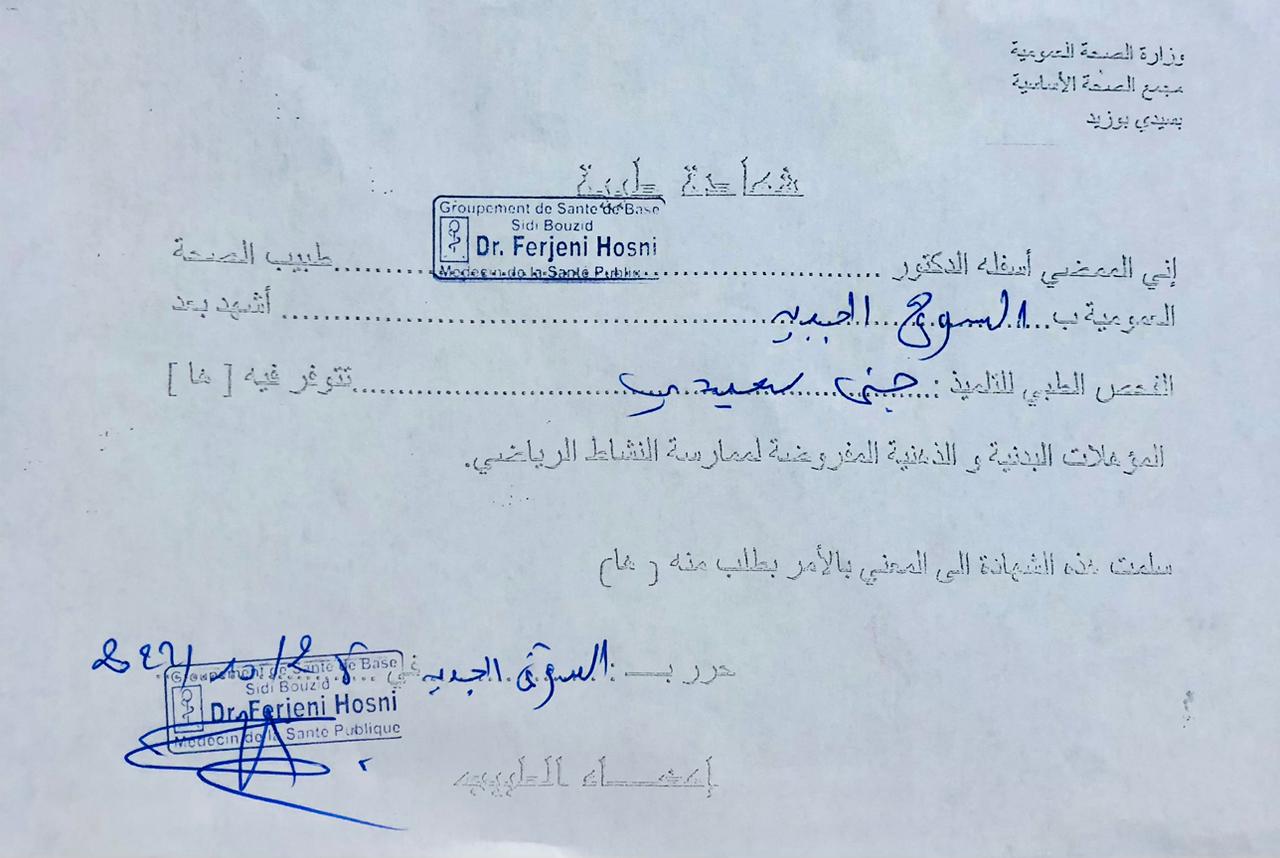 وزارة الصحة العمومية
مجمع الصحة الأساسية
بسيدي بوزيد
شهادة طبية
Groupement de Sante de Base
Sidi Bouzid
Dr. Ferjeni Hosni
Medecin de la Santé Publique
إني الممضي أسفله الدكتور .................... طبيب الصحة
العمومية ب... السوق الجديد .................... أشهد بعد
الفحص الطبي للتلميذ : .................... تتوفر فيه [ ها ]
المؤهلات البدنية و الذهنية المفروضة لممارسة النشاط الرياضي.
سلمت هذه الشهادة الى المعني بالأمر بطلب منه ( ها)
حرر بـ : السوق الجديد في
Groupement de Sante de Base
Sidi Bouzid
Dr. Ferjeni Hosni
Medecin de la Santé Publique
إمضاء الطبيب